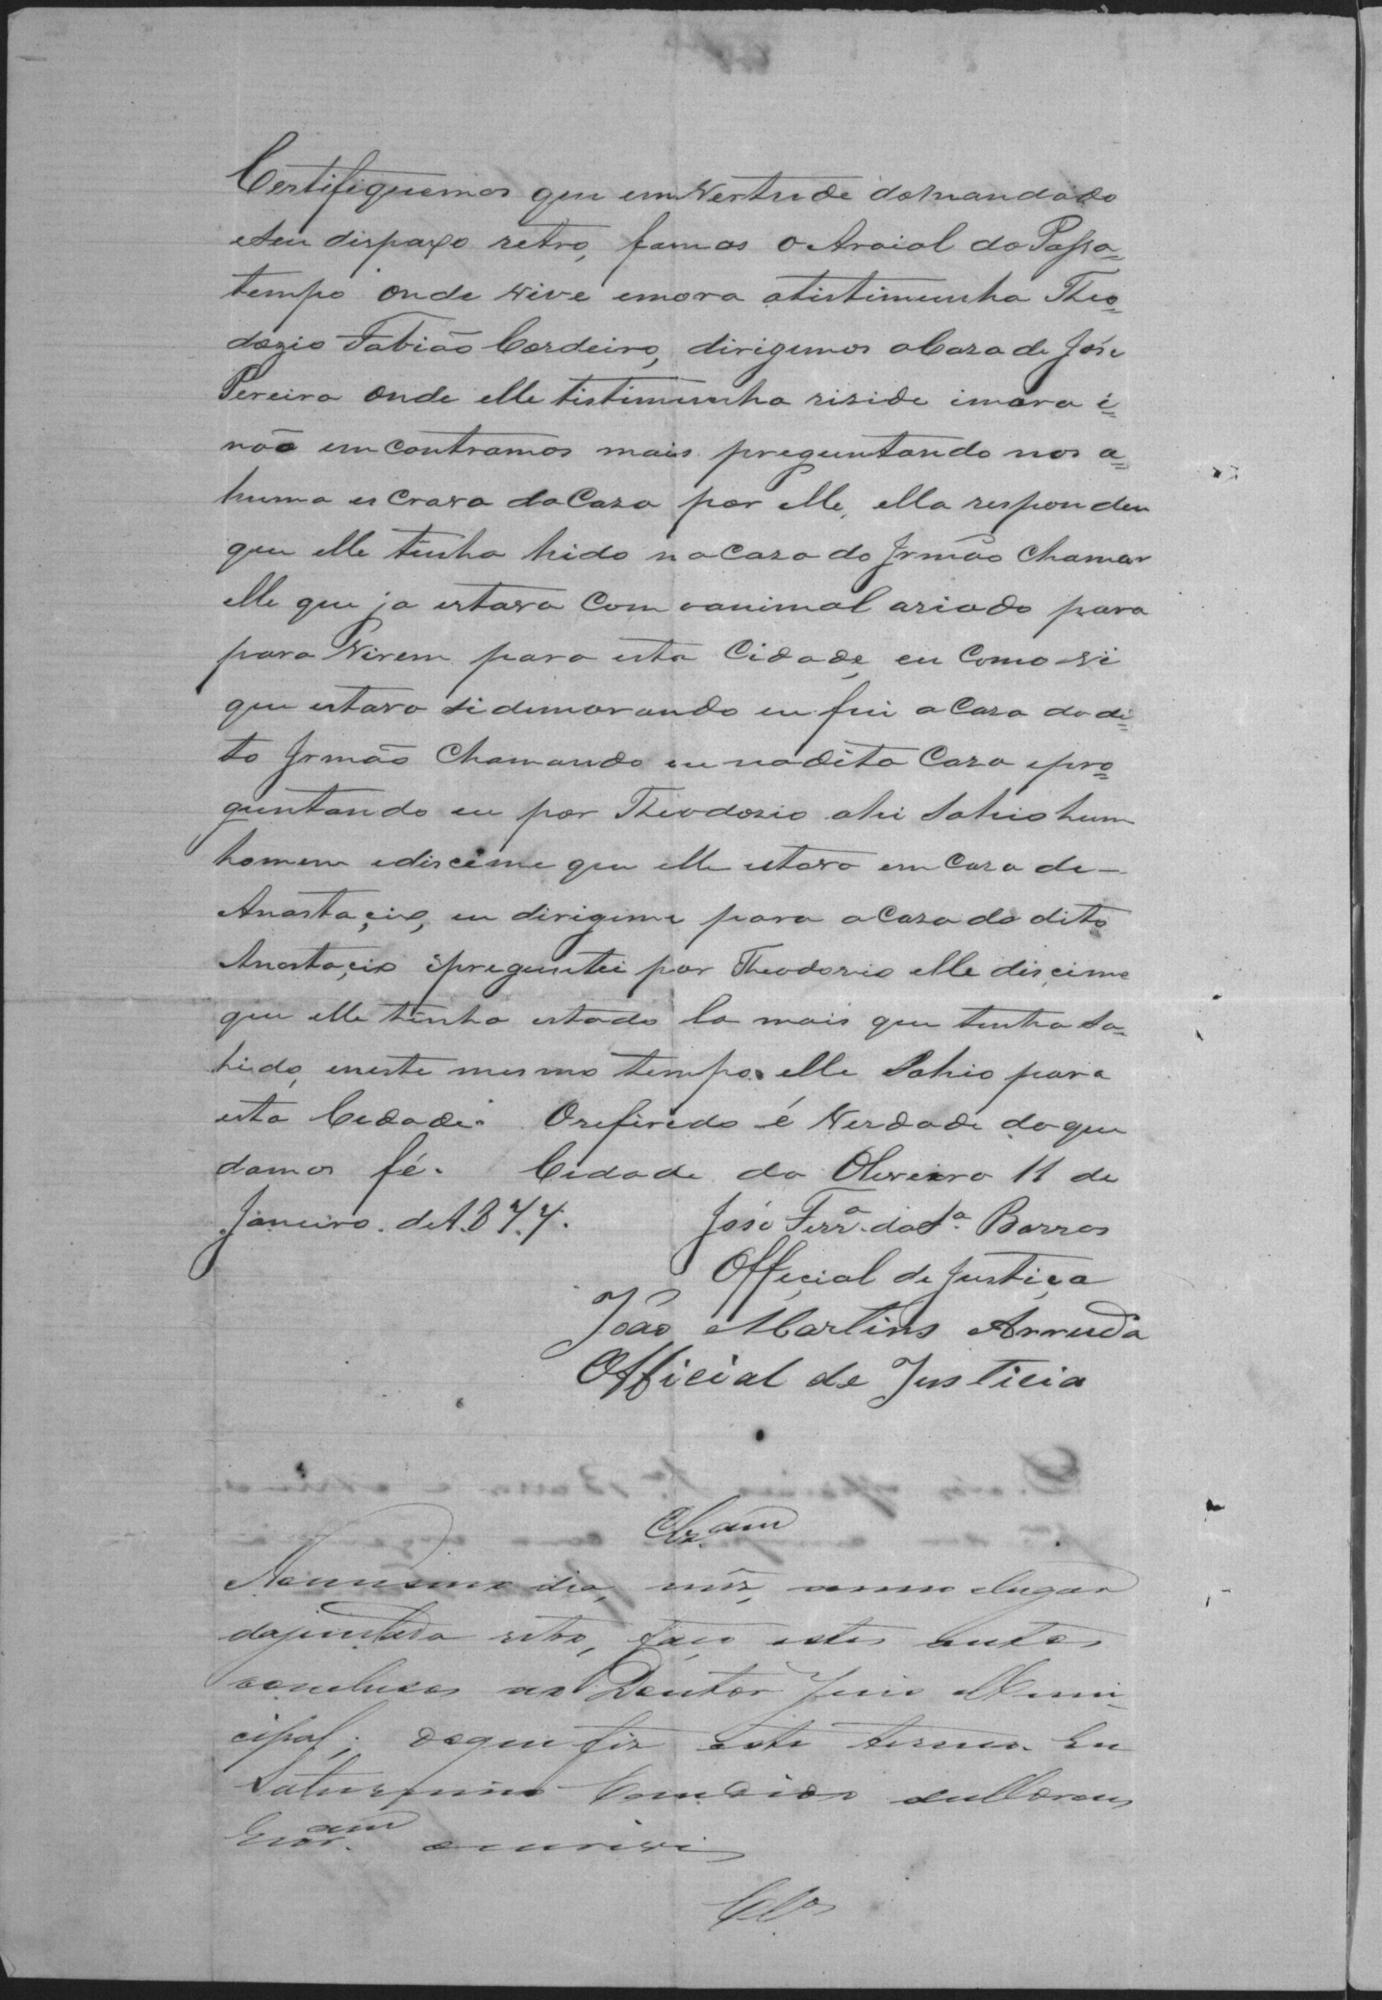 Certifiquemos que em Vertude do mandado
e seu dispaxo retro, fomos o Araial do Passa=
tempo onde vive emora atistimunha Theo=
dozio Fabião Cordeiro, dirigemos a Caza de José
Pereira onde elle tistimunha riside imora é=
não em contramos mais preguntando nos a=
huma es Crava da Caza por elle, ella respondeu
que elle tinha hido na Caza do Irmão Chamar
elle que ja estava Com o animal ariado para
para Virem para esta Cidade, eu Como vi
que estava si demorando eu fui a Caza do di=
to Irmão Chamando eu na dita Caza epre=
guntando eu por Theodosio ahi Sahio hum
homem edisceme que elle estava em Caza de—
Anastaçio, eu dirigeme para a Caza do dito
Anastaçio epreguntei por Theodosio elle disçime
que elle tinha estado la mais que tinha Sa=
hido, eneste mesmo tempo elle Sahio para
esta Cedade. O refirido é Verdade do que
damos fé. Cidade da Oliveira 11 de
Janeiro de 1877.
José Ferrª. da Sª. Barros
Offiçial de Justiça
João Martins Arruda
Official de Justicia
Clz.am
No mesmo dia, mês, anno elugar
da juntada retro, faço estes autos
conclusos ao Doutor Juis Muni-
cipal; do que fiz este termo. Eu
Saturnino Candido
Escr.am o escrivi
Clos